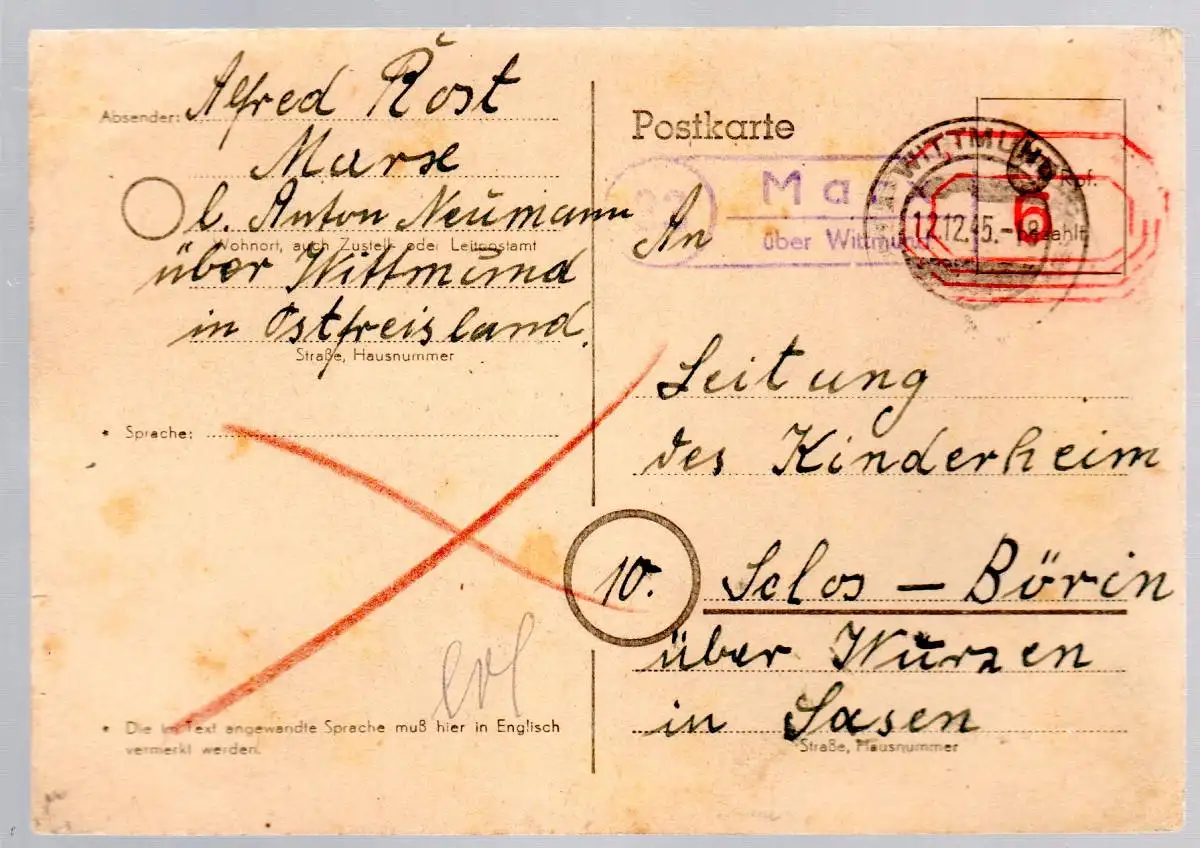 Absender: Alfred Rost
Marse
b. Anton Neumann
Wohnort, auch Zustell- oder Leitpostamt
über Wittmund
in Ostfreisland.
Straße, Hausnummer
* Sprache:
erl
* Die im Text angewandte Sprache muß hier in Englisch
vermerkt werden.
Postkarte
Ma
über Wittmund
WITTMUND
12.12.45.-18
6
bezahlt
An
Leitung
des Kinderheim
10. Sclos – Börin
über Wurzen
in Sasen
Straße, Hausnummer